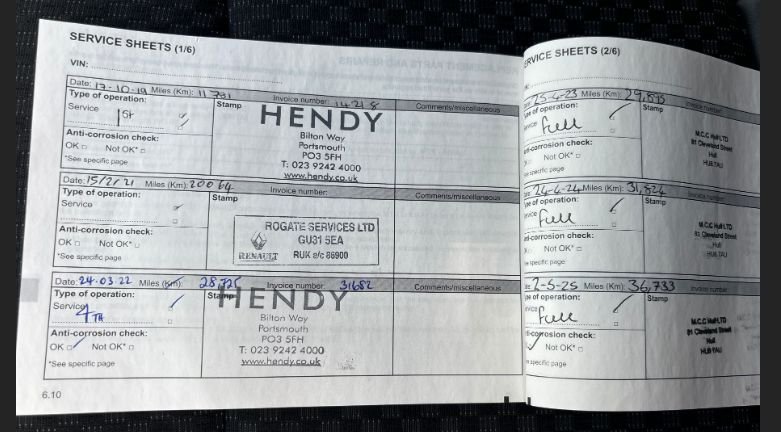 SERVICE SHEETS (1/6)
VIN:
Date: 17-10-19 Miles (Km): 11 731 Invoice number: 14218 Comments/miscellaneous
Type of operation: Stamp
Service 1st
Anti-corrosion check:
OK □ Not OK* □
*See specific page
HENDY
Bilton Way
Portsmouth
PO3 5FH
T: 023 9242 4000
www.hendy.co.uk
Date: 15/2/21 Miles (Km): 20064 Invoice number: Comments/miscellaneous
Type of operation: Stamp
Service
Anti-corrosion check:
OK □ Not OK* □
*See specific page
ROGATE SERVICES LTD
GU31 5EA
RENAULT RUK s/c 86900
Date: 24-03-22 Miles (Km): 28,725 Invoice number: 31682 Comments/miscellaneous
Type of operation: Stamp
Service 4TH
Anti-corrosion check:
OK Not OK* □
*See specific page
HENDY
Bilton Way
Portsmouth
PO3 5FH
T: 023 9242 4000
www.hendy.co.uk
6.10
SERVICE SHEETS (2/6)
25-4-23 Miles (Km): 29,895 Invoice number
of operation: Stamp
Full
-corrosion check:
Not OK* □
specific page
M.C.C Hull LTD
81 Cleveland Street
Hull
24-4-24 Miles (Km): 31,824
of operation: Stamp
Full
-corrosion check:
Not OK* □
specific page
M.C.C Hull LTD
81 Cleveland Street
Hull
2-5-25 Miles (Km): 36,733
of operation: Stamp
Full
-corrosion check:
Not OK* □
specific page
M.C.C Hull LTD
81 Cleveland Street
Hull